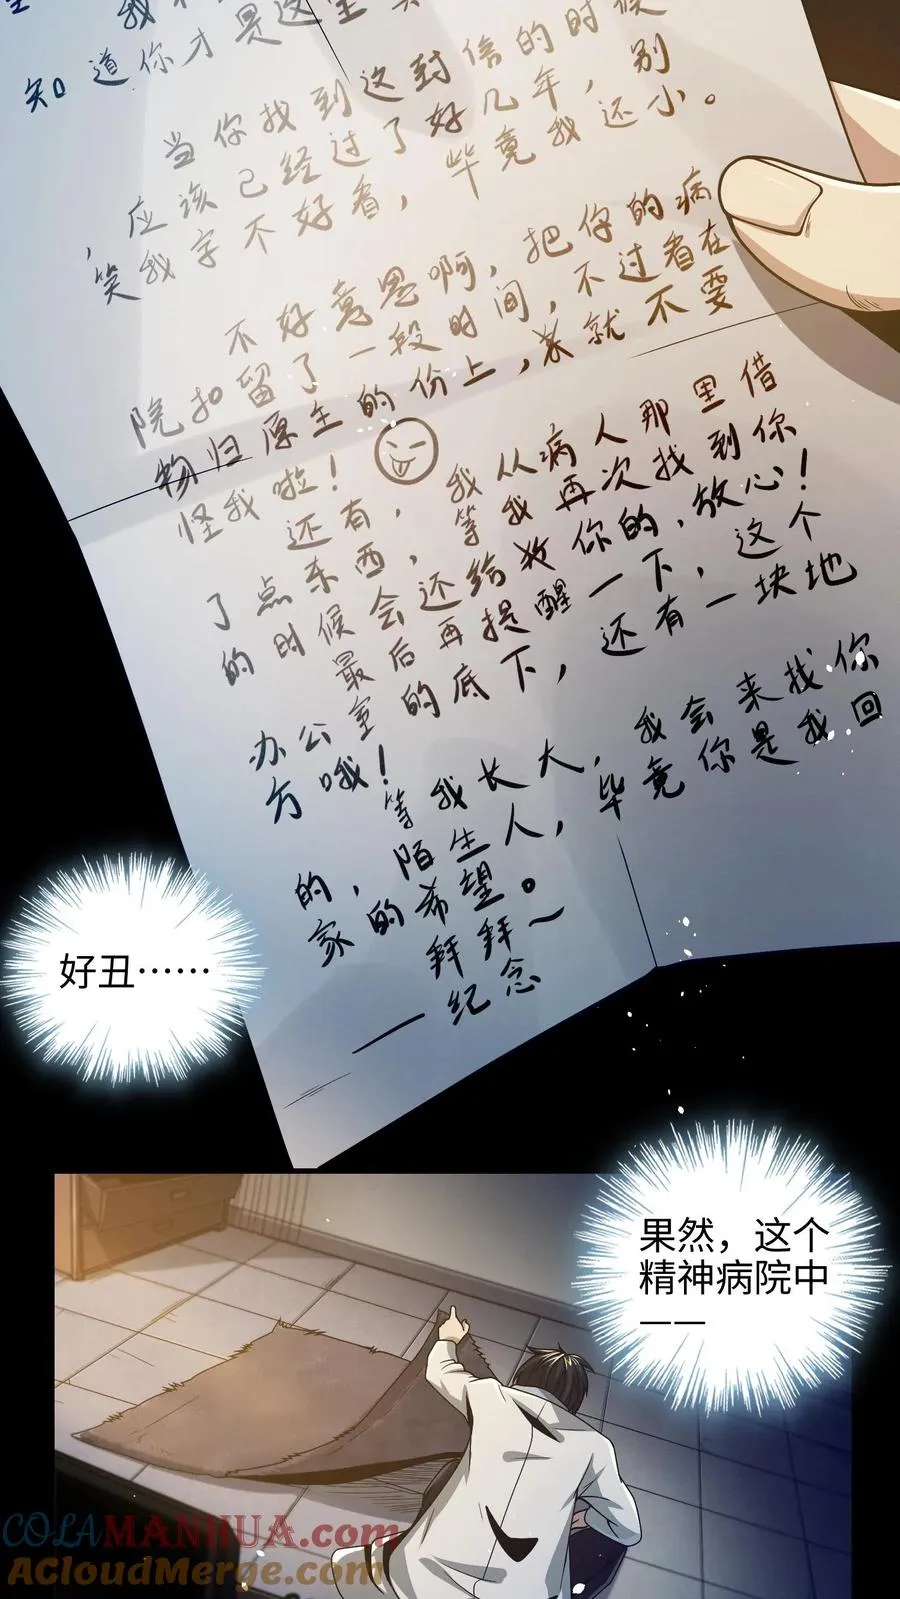 我
知道你才是这里
当你找到这封信的时候
，应该已经过了好几年，别
笑我字不好看，毕竟我还小。
不好意思啊，把你的病
院扣留了一段时间，不过看在
物归原主的份上，就不要
怪我啦！
还有，我从病人那里借
了点东西，等我再次找到你
的时候会还给你的，放心！
最后再提醒一下，这个
办公室的底下，还有一块地
方哦！
等我长大，我会来找你
的，陌生人，毕竟你是我回
家的希望。
拜拜～
——纪念
好丑……
果然，这个
精神病院中
——
COLAMANHUA.com
AcloudMerge.com